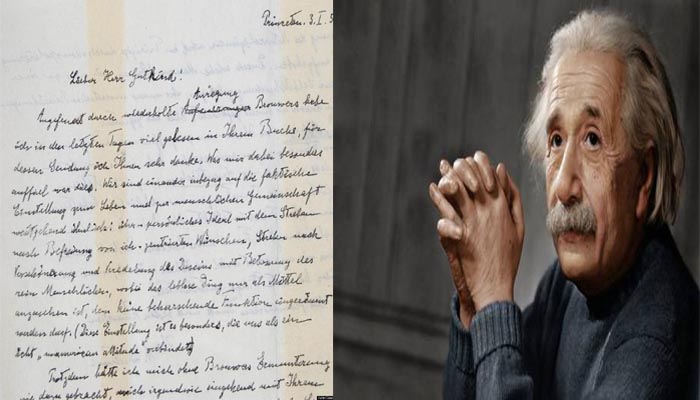 Princeton. 3. I. 5
Lieber Herr Gutkind!
Anregung
Angefeuert durch wiederholte Brouwers habe
ich in den letzten Tagen viel gelesen in Ihrem Buche, für
dessen Sendung ich Ihnen sehr danke. Was mir dabei besonders
auffiel war dies. Wir sind einander inbezug auf die faktische
Einstellung zum Leben und zur menschlichen Gemeinschaft
weitgehend ähnlich: über-persönliches Ideal mit dem Streben
nach Befreiung von ich-zentrierten Wünschen, Streben nach
Verschönerung und Veredelung des Daseins mit Betonung des
rein Menschlichen, wobei das leblose Ding nur als Mittel
anzusehen ist, dem keine beherrschende Funktion eingeräumt
werden darf. (Diese Einstellung ist es besonders, die uns als ein
echt „unamerican attitude" verbindet)
Trotzdem hätte ich mich ohne Brouwers Ermunterung
nie dazu gebracht, mich irgendwie eingehend mit Ihrem